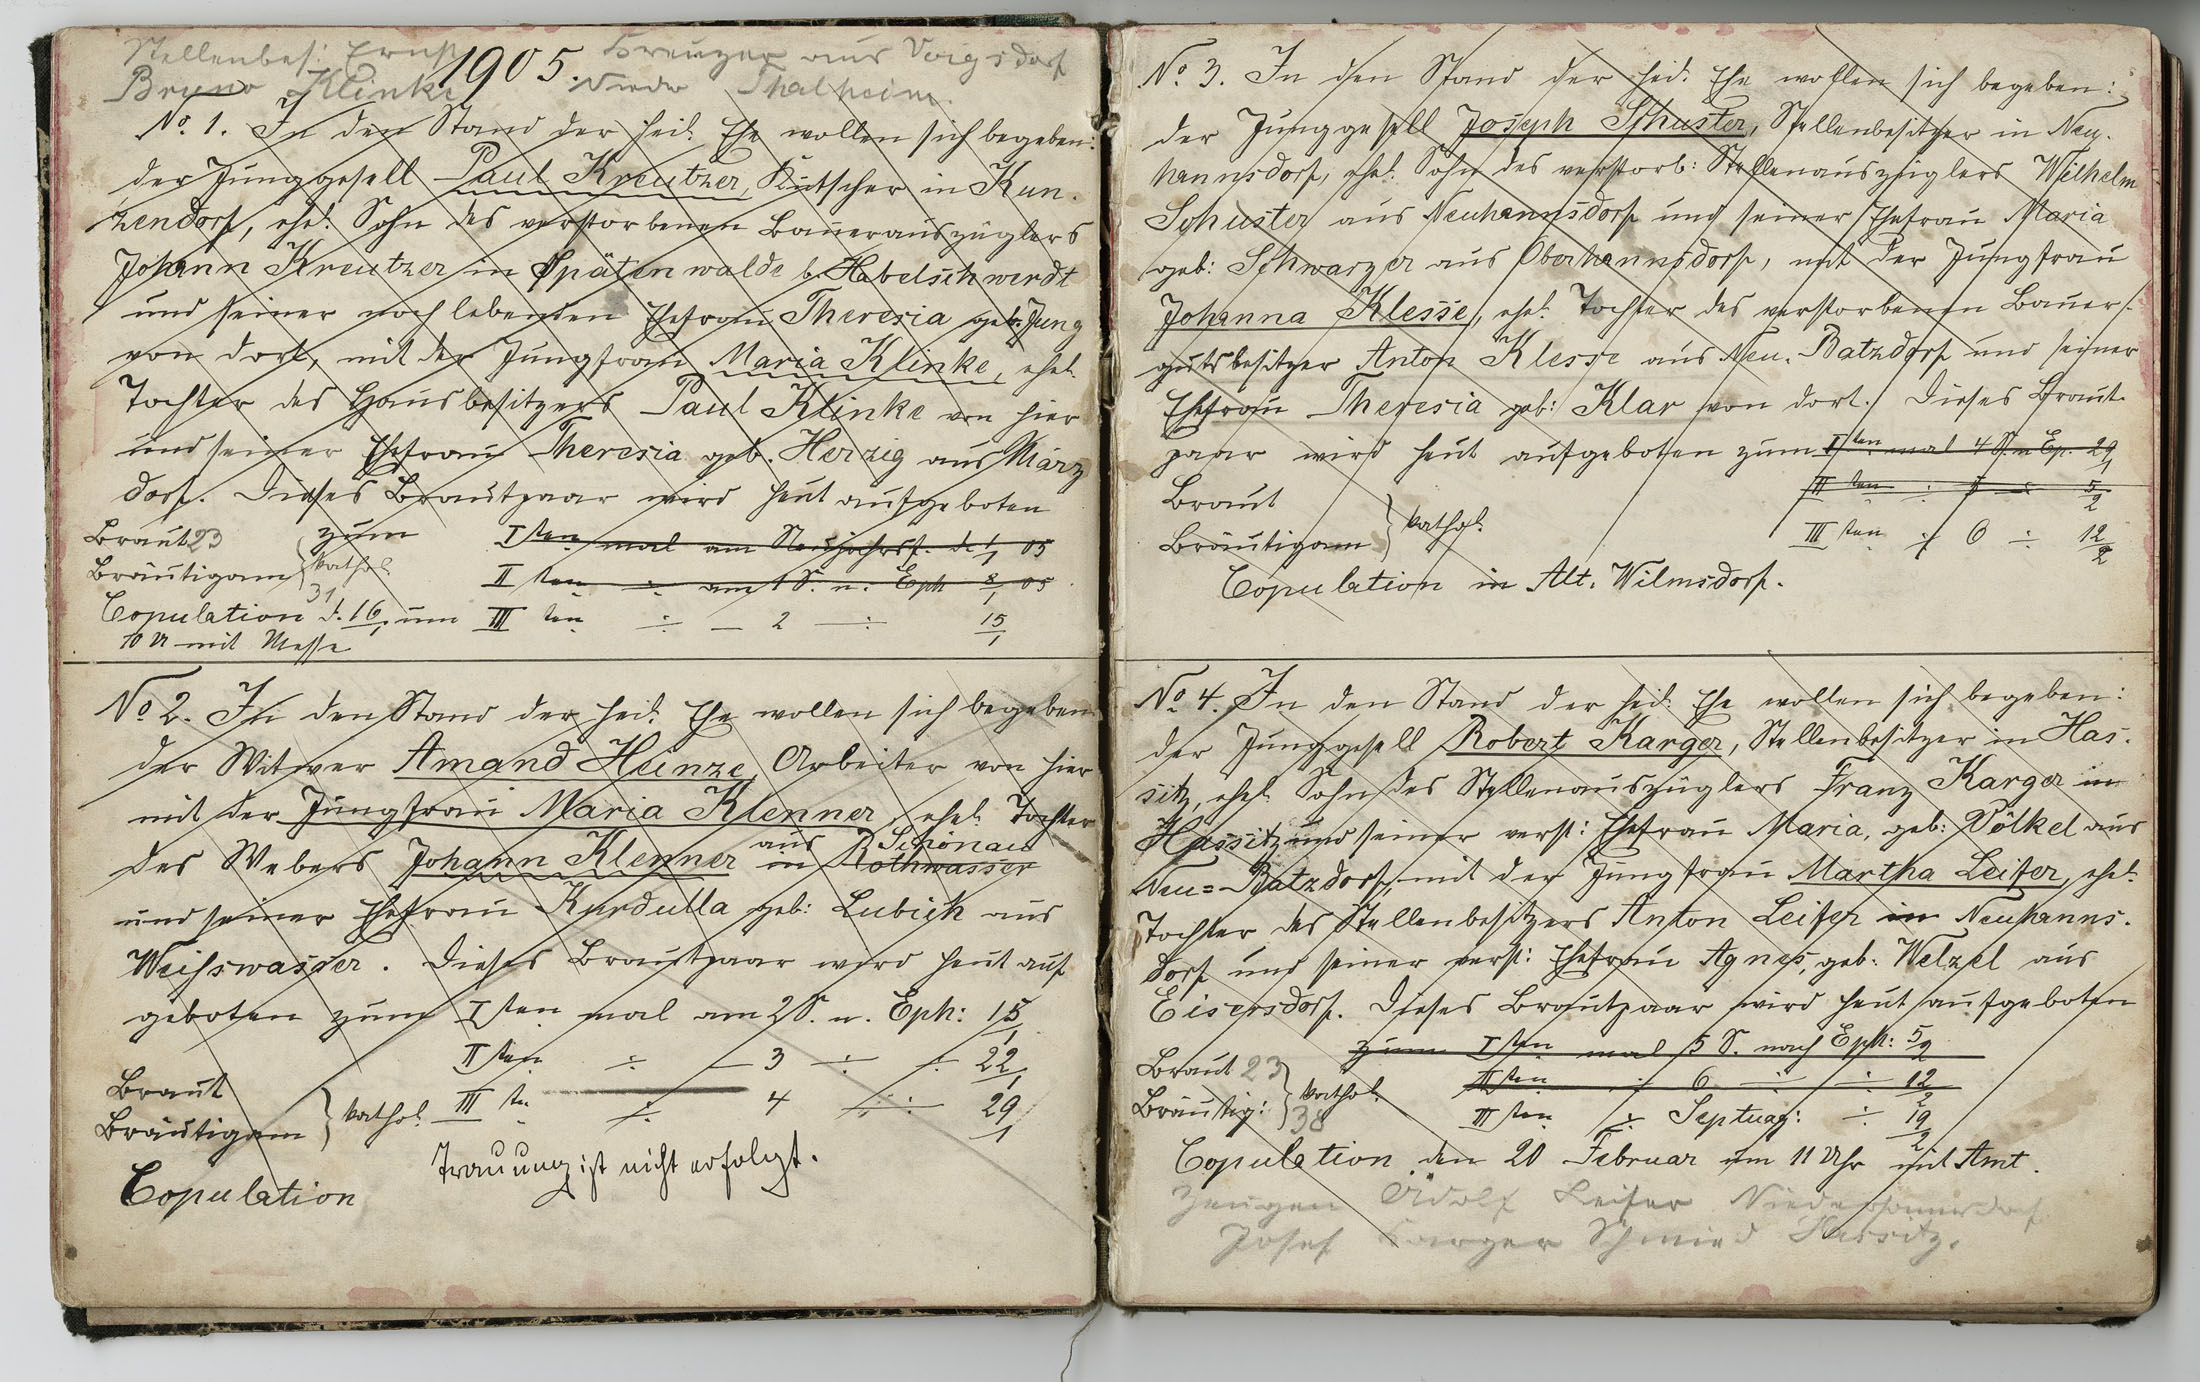 Stellenbes: Ernst Kreuzer aus Voigsdorf
1905.
Bruno Klinke Nieder Thalheim.
No. 1. In den Stand der heil. Ehe wollen sich begeben:
der Junggesell Paul Kreutzer, Kutscher in Kun-
zendorf, ehel. Sohn des verstorbenen Bauerauszüglers
Johann Kreutzer in Spätenwalde b. Habelschwerdt
und seiner noch lebenden Ehefrau Theresia geb. Jung
von dort, mit der Jungfrau Maria Klinke, ehel.
Tochter des Hausbesitzers Paul Klinke von hier
und seiner Ehefrau Theresia geb. Herzig aus März
dorf. Dieses Brautpaar wird heut aufgeboten
Braut 23 zum Iten mal am Neujahrsf. d. 1/1 05
Bräutigam 31 kathol. II ten ÷ am 1 S. n. Eph 8/1 05
Copulation d. 16/1 um III ten ÷ — 2 — ÷ 15/1
10 U mit Messe
No 2. In den Stand der heil. Ehe wollen sich begeben
der Witwer Amand Heinze, Arbeiter von hier
mit der Jungfrau Maria Klenner, ehel. Tochter
aus Schönau
des Webers Johann Klenner in Rothwasser
und seiner Ehefrau Kordulla geb: Lubich aus
Weisswasser. Dieses Brautpaar wird heut auf
geboten zum Iten mal am 2 S. n. Eph: 15/1
II ten ÷ — 3 ÷ ÷ 22/1
Braut
Bräutigam } kathol. III t. ÷ 4 ÷ 29/1
Trauung ist nicht erfolgt.
Copulation
No 3. In den Stand der heil. Ehe wollen sich begeben:
der Junggesell Joseph Schuster, Stellenbesitzer in Neu-
hannsdorf, ehel. Sohn des verstorb: Stellenauszüglers Wilhelm
Schuster aus Neuhannsdorf und seiner Ehefrau Maria
geb: Schwarzer aus Oberhannsdorf, mit der Jungfrau
Johanna Klesse, ehel. Tochter des verstorbenen Bauer-
gutsbesitzer Anton Klesse aus Neu-Batzdorf und seiner
Ehefrau Theresia geb: Klar von dort. Dieses Braut-
paar wird heut aufgeboten zum Iten mal 4 S. n Ep. 29/1
Braut II ten ÷ 5 ÷ 5/2
Bräutigam } kathol. III ten ÷ 6 ÷ 12/2
Copulation in Alt-Wilmsdorf.
No 4. In den Stand der heil. Ehe wollen sich begeben:
der Junggesell Robert Karger, Stellenbesitzer in Has-
sitz, ehel. Sohn des Stellenauszüglers Franz Karger in
Hassitz und seiner verst: Ehefrau Maria, geb: Völkel aus
Neu=Batzdorf, mit der Jungfrau Martha Leifer, ehel.
Tochter des Stellenbesitzers Anton Leifer in Neuhanns-
dorf und seiner verst: Ehefrau Agnes, geb. Welzel aus
Eisersdorf. Dieses Brautpaar wird heut aufgeboten
zum Iten mal 5 S. nach Eph: 5/2
Braut 23 II ten ÷ 6 ÷ ÷ 12/2
Bräutig: 38 } kathol. III ten ÷ Septuag: ÷ 19/2
Copulation den 20 Februar um 11 Uhr mit Amt.
Zeugen Adolf Leifer Niederhannsdorf
Josef Karger Schmied Hassitz.